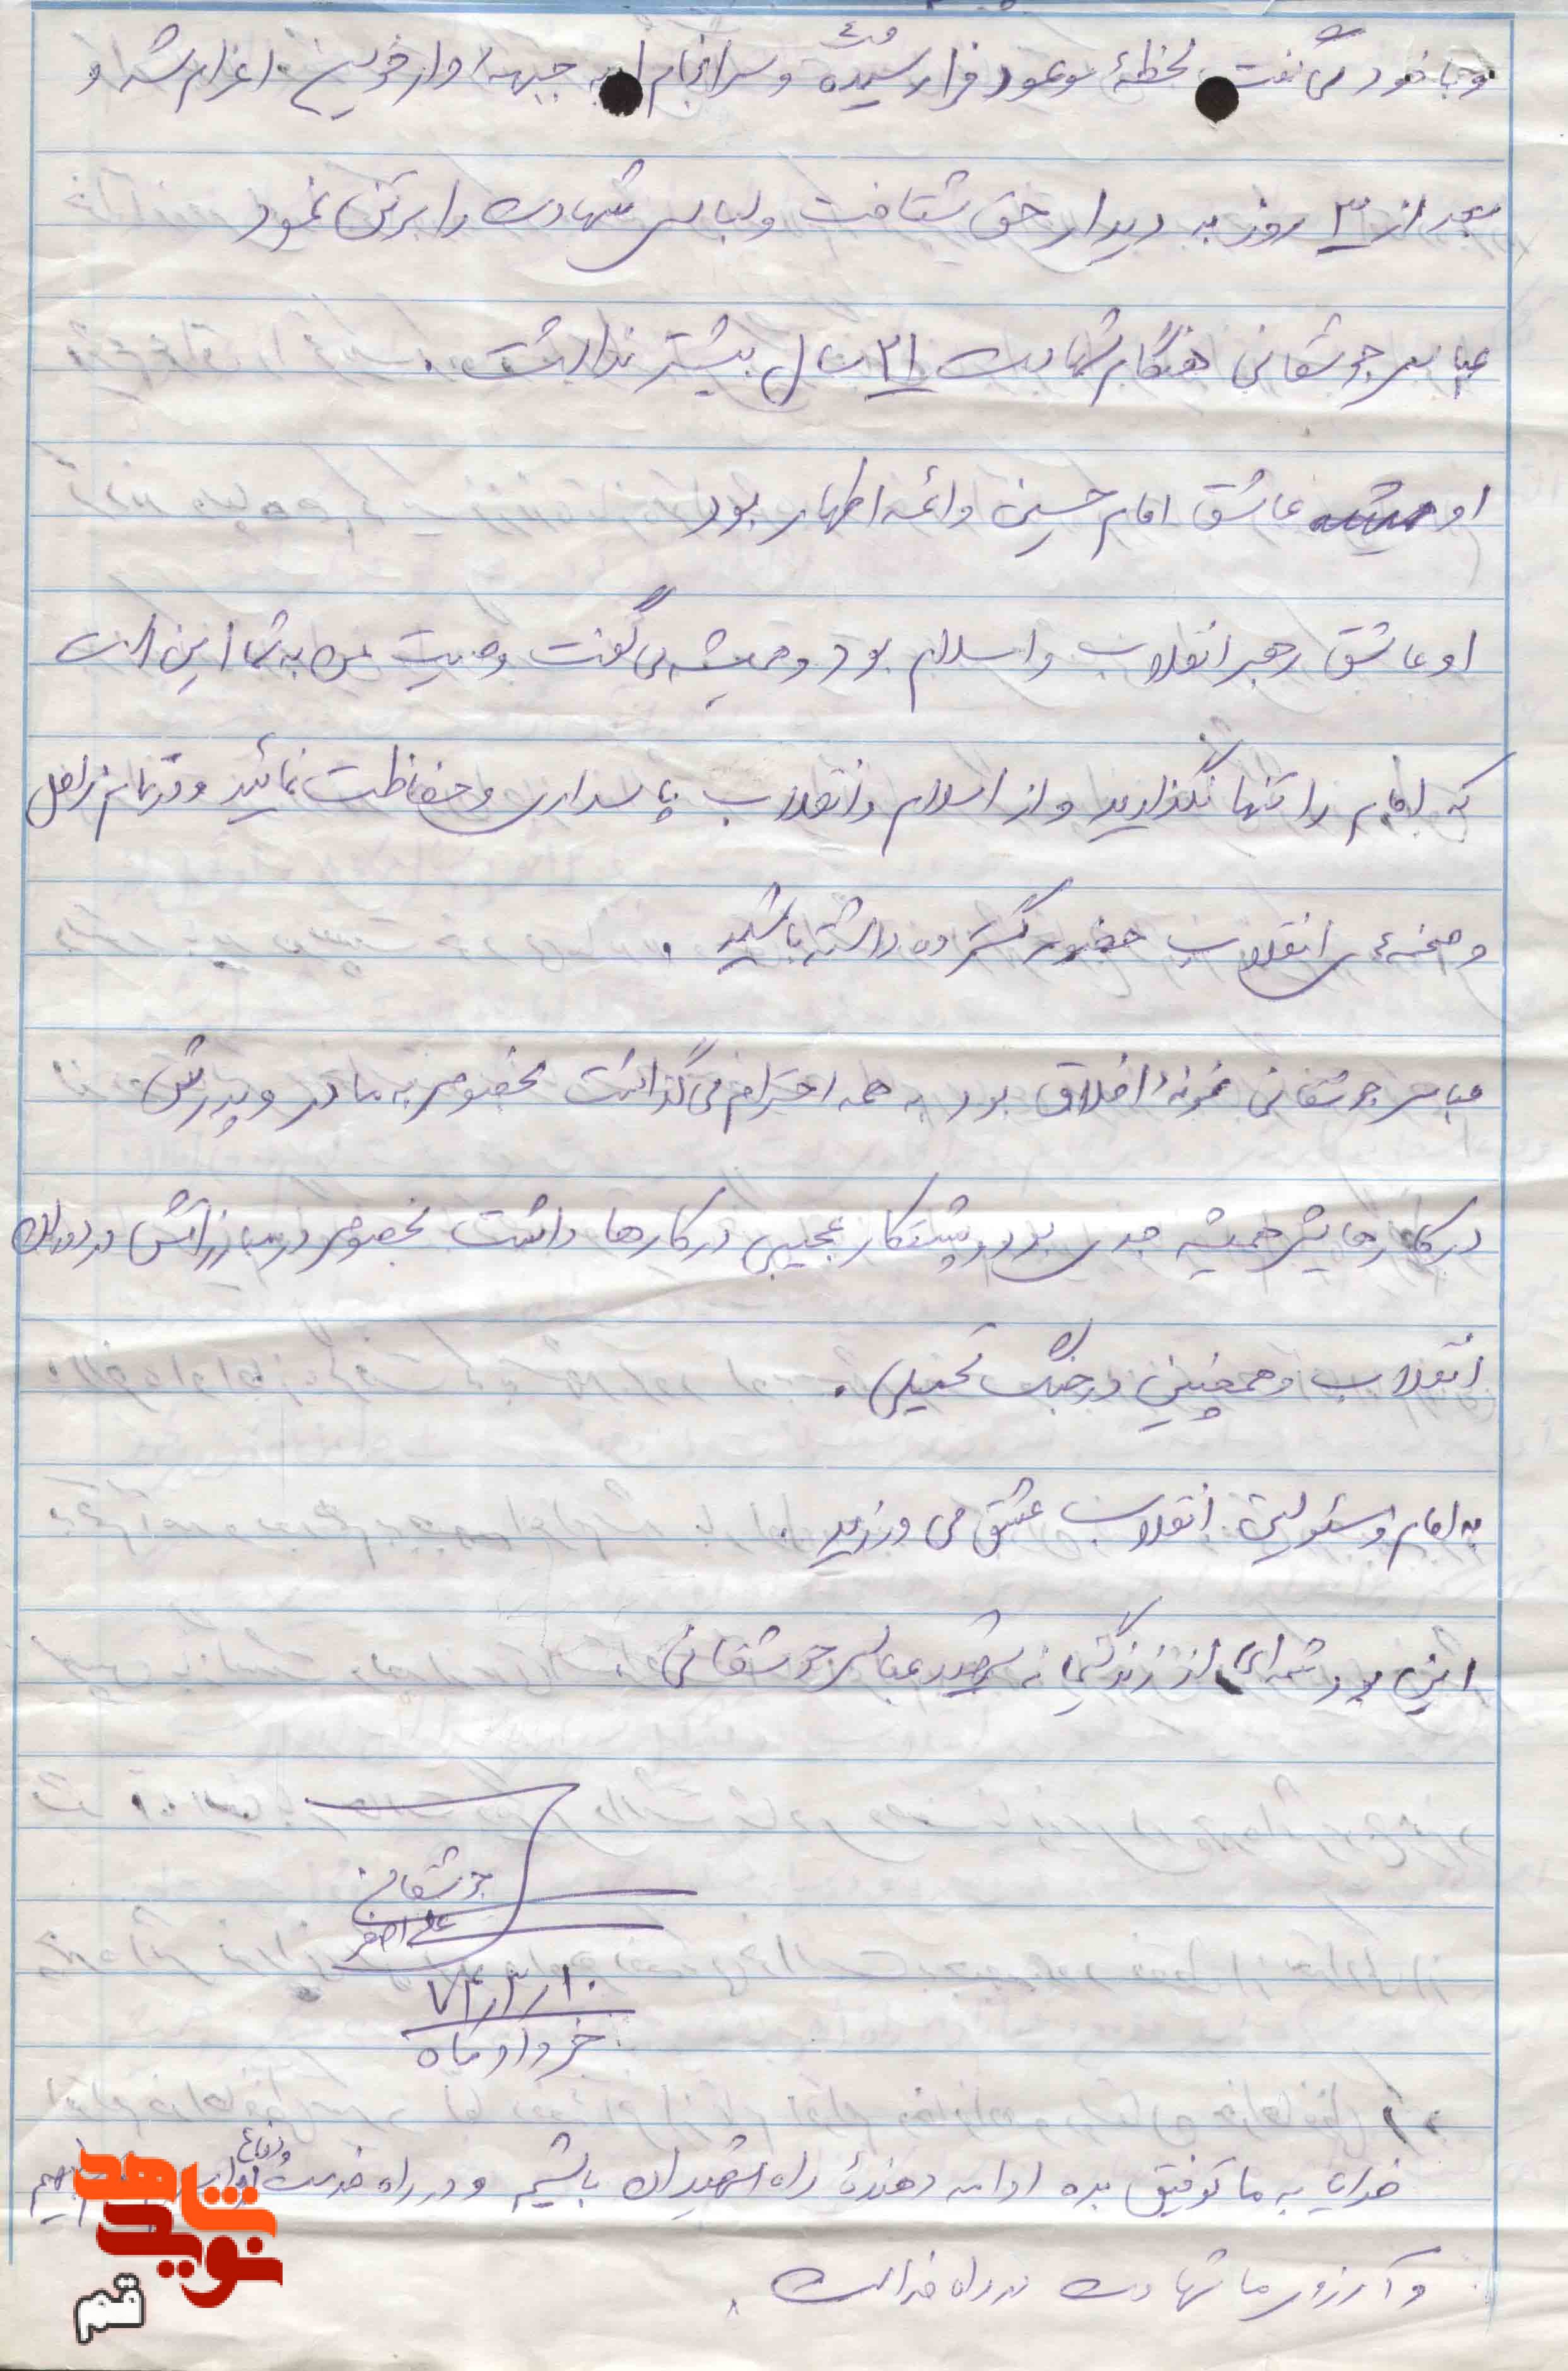 و با خود می گفت لحظهٔ موعود فرا رسیده و سرانجام به جبهه اعزام شد و
بعد از ۳ روز به دیدار حق شتافت و لباس شهادت را بر تن نمود
عباس جوشقانی هنگام شهادت ۲۱ سال بیشتر نداشت .
او عاشق امام حسین و ائمه اطهار بود
او عاشق رهبر انقلاب و اسلام بود و همیشه می گفت وصیت من به شما این است
که امام را تنها نگذارید و از اسلام و انقلاب پاسداری و حفاظت نمائید و در تمام مراحل
و صحنه ی انقلاب حضور گسترده داشته باشید .
عباس جوشقانی نمونهٔ اخلاق بود به همه احترام می گذاشت بخصوص به مادر و پدرش
در کارهایش همیشه جدی بود و پشتکار عجیبی در کارها داشت بخصوص در مبارزاتش در دوران
انقلاب و همچنین در جنگ تحمیلی .
به امام و مسئولین انقلاب عشق می ورزید .
این بود شمه ای از زندگی شهید عباس جوشقانی .
جوشقانی
علی اصغر
۷۳٫۳٫۱۰
خرداد ماه
خدایا به ما توفیق بده ادامه دهندهٔ راه شهیدان باشیم و در راه خدمت و دفاع
و آرزوی ما شهادت در راه خداست .
نوید شاهد
قم